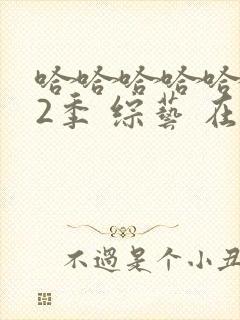 哈哈哈哈哈
2季 综藝 在
不過是个小丑